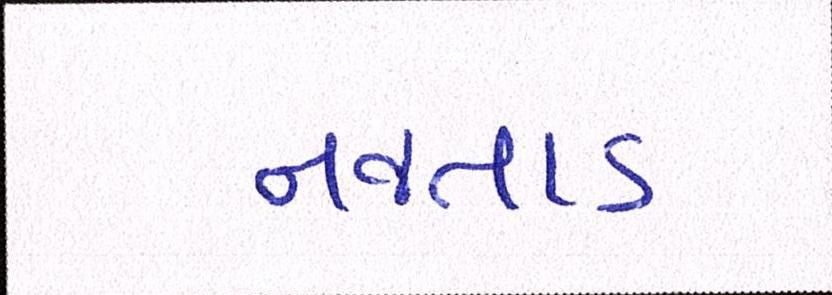 નવતાડ